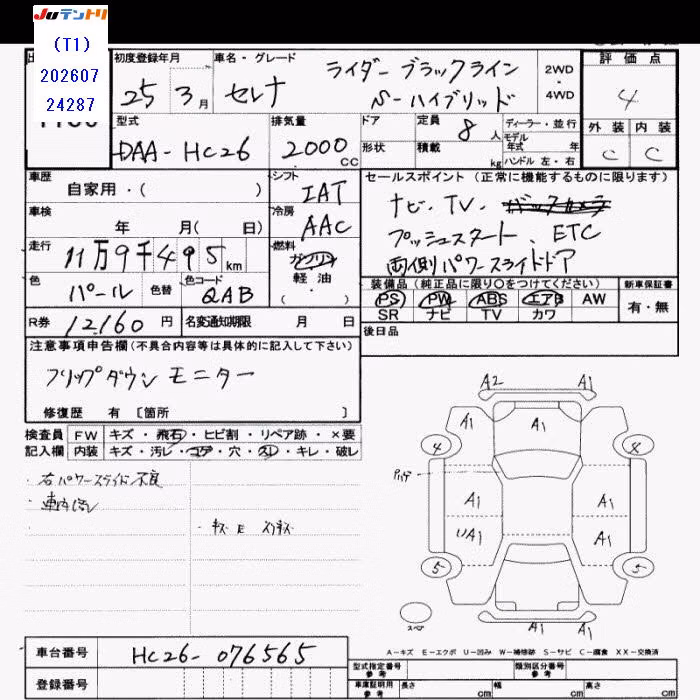 JUテントリ
(T1)
202607
24287
初度登録年月
車名・グレード
ライダー ブラックライン
S-ハイブリッド
25 3月
セレナ
2WD
・
4WD
評価点
4
外装 内装
C C
型式
DAA-HC26
排気量
2000 cc
ドア
形状
定員 8 人
積載 kg
ディーラー・並行
モデル
年式 年
ハンドル 左・右
車歴
自家用・( )
シフト
IAT
セールスポイント(正常に機能するものに限ります)
ナビ・TV・
プッシュスタート、ETC
両側パワースライドドア
車検
年 月( 日)
冷房
AAC
走行
11万9千495km
燃料
ガソリン
軽油
( )
色
パール
色替
色コード
QAB
装備品(純正品に限り○をつけてください)
PS PW ABS エアB AW
SR ナビ TV カワ
新車保証書
有・無
R券
12,160 円
名変通知期限 月 日
後日品
注意事項申告欄(不具合内容等は具体的に記入して下さい)
フリップダウンモニター
修復歴 有 [箇所 ]
検査員
記入欄
FW キズ・飛石・ヒビ割・リペア跡・×要
内装 キズ・汚レ・コゲ・穴・スレ・キレ・破レ
・右パワースライド不良
・車内
A2 A1
A1 A1 A1
4 8
A1 A1
UA1 A1
5 5
スペア
A1 A1
A-キズ E-エクボ U-凹み W-補修跡 S-サビ C-腐食 XX-交換済
車台番号
HC26-076565
登録番号
型式指定番号
参考
類別区分番号
参考
車庫証明用
参考
長さ cm 幅 cm 高さ cm